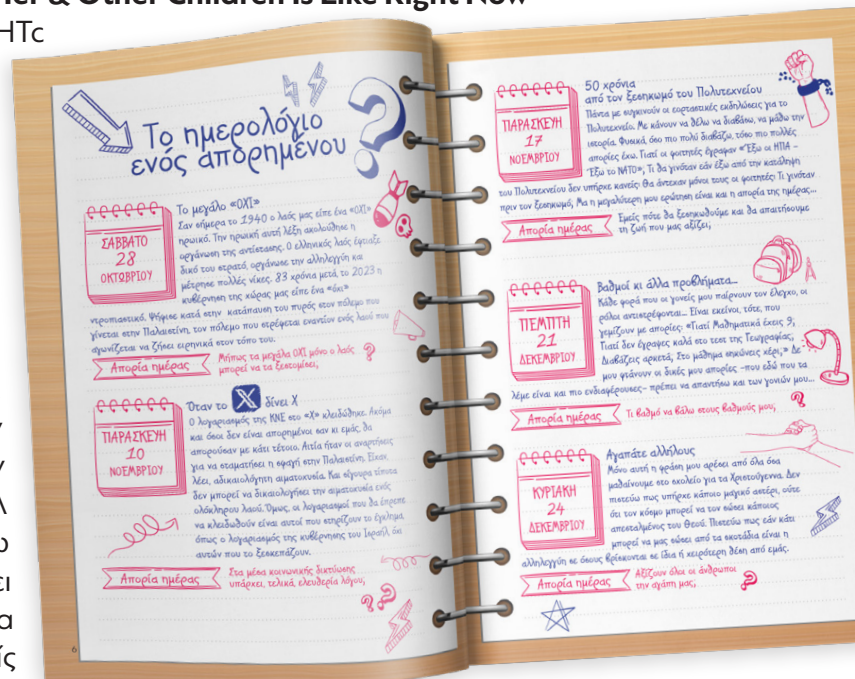 her & Other Children is Like Right Now
HTc
Το ημερολόγιο
ενός απορημένου
?
ΣΑΒΒΑΤΟ
28
ΟΚΤΩΒΡΙΟΥ
Το μεγάλο «ΟΧΙ»
Σαν σήμερα το 1940 ο λαός μας είπε ένα «ΟΧΙ»
ηρωικό. Την ηρωική αυτή λέξη ακολούθησε η
οργάνωση της αντίστασης. Ο ελληνικός λαός έφτιαξε
δικό του στρατό, οργάνωσε την αλληλεγγύη και
μέτρησε πολλές νίκες. 83 χρόνια μετά, το 2023 η
κυβέρνηση της χώρας μας είπε ένα «όχι»
ντροπιαστικό. Ψήφισε κατά στην κατάπαυση του πυρός στον πόλεμο που
γίνεται στην Παλαιστίνη, τον πόλεμο που στρέφεται εναντίον ενός λαού που
αγωνίζεται να ζήσει ειρηνικά στον τόπο του.
Απορία ημέρας
Μήπως τα μεγάλα ΟΧΙ μόνο ο λαός
μπορεί να τα ξεστομίσει;
ΠΑΡΑΣΚΕΥΗ
10
ΝΟΕΜΒΡΙΟΥ
Όταν το X δίνει Χ
Ο λογαριασμός της ΚΝΕ στο «Χ» κλειδώθηκε. Ακόμα
και όσοι δεν είναι απορημένοι σαν κι εμάς, θα
απορούσαν με κάτι τέτοιο. Αιτία ήταν οι αναρτήσεις
για να σταματήσει η σφαγή στην Παλαιστίνη. Είχαν,
λέει, αδικαιολόγητη αιματοχυσία. Και σίγουρα τίποτα
δεν μπορεί να δικαιολογήσει την αιματοχυσία ενός
ολόκληρου λαού. Όμως, οι λογαριασμοί που θα έπρεπε
να κλειδωθούν είναι αυτοί που στηρίζουν το έγκλημα,
όπως ο λογαριασμός της κυβέρνησης του Ισραήλ όχι
αυτών που το ξεσκεπάζουν.
Απορία ημέρας
Στα μέσα κοινωνικής δικτύωσης
υπάρχει, τελικά, ελευθερία λόγου;
6
ΠΑΡΑΣΚΕΥΗ
17
ΝΟΕΜΒΡΙΟΥ
50 χρόνια
από τον ξεσηκωμό του Πολυτεχνείου
Πάντα με συγκινούν οι εορταστικές εκδηλώσεις για το
Πολυτεχνείο. Με κάνουν να θέλω να διαβάσω, να μάθω την
ιστορία. Φυσικά, όσο πιο πολύ διαβάζω, τόσο πιο πολλές
απορίες έχω. Γιατί οι φοιτητές έγραφαν «Έξω οι ΗΠΑ –
Έξω το ΝΑΤΟ»; Τι θα γινόταν εάν έξω από την κατάληψη
του Πολυτεχνείου δεν υπήρχε κανείς; Θα άντεχαν μόνοι τους οι φοιτητές; Τι γινόταν
πριν τον ξεσηκωμό; Μα η μεγαλύτερη μου ερώτηση είναι και η απορία της ημέρας...
Απορία ημέρας
Εμείς πότε θα ξεσηκωθούμε και θα απαιτήσουμε
τη ζωή που μας αξίζει;
ΠΕΜΠΤΗ
21
ΔΕΚΕΜΒΡΙΟΥ
Βαθμοί κι άλλα προβλήματα...
Κάθε φορά που οι γονείς μου παίρνουν τον έλεγχο, οι
ρόλοι αντιστρέφονται... Είναι εκείνοι, τότε, που
γεμίζουν με απορίες: «Γιατί Μαθηματικά έχεις 9;
Γιατί δεν έγραψες καλά στο τεστ της Γεωγραφίας;
Διαβάζεις αρκετά; Στο μάθημα σηκώνεις χέρι;» Δε
μου φτάνουν οι δικές μου απορίες –που εδώ που τα
λέμε είναι και πιο ενδιαφέρουσες– πρέπει να απαντήσω και των γονιών μου...
Απορία ημέρας
Τι βαθμό να βάλω στους βαθμούς μου;
ΚΥΡΙΑΚΗ
24
ΔΕΚΕΜΒΡΙΟΥ
Αγαπάτε αλλήλους
Μόνο αυτή η φράση μου αρέσει από όλα όσα
μαθαίνουμε στο σχολείο για τα Χριστούγεννα. Δεν
πιστεύω πως υπήρχε κάποιο μαγικό αστέρι, ούτε
ότι τον κόσμο μπορεί να τον σώσει κάποιος
απεσταλμένος του Θεού. Πιστεύω πως εάν κάτι
μπορεί να μας σώσει από τα σκοτάδια είναι η
αλληλεγγύη σε όσους βρίσκονται σε ίδια ή χειρότερη θέση από εμάς.
Απορία ημέρας
Αξίζουν όλοι οι άνθρωποι
την αγάπη μας;